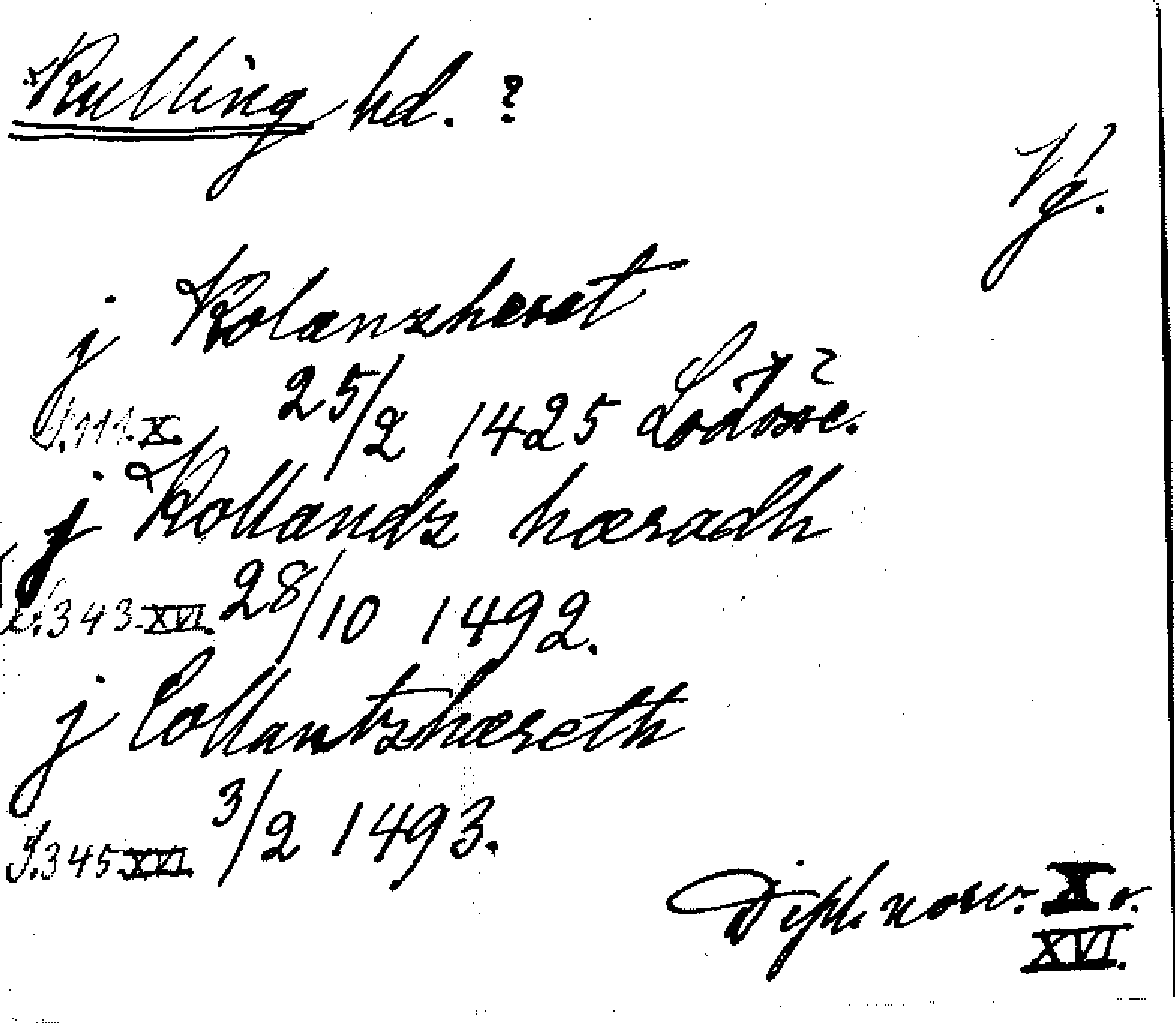 *Kulling hd. ?
Vg.
j Kolanzherat
S.111.X. 25/2 1425 Lödöse.
j Kollandz hæradh
S.343.XVI. 28/10 1492.
j Collantzhæreth
S.345.XVI. 3/2 1493.
Dipl. norv. X o.
XVI.